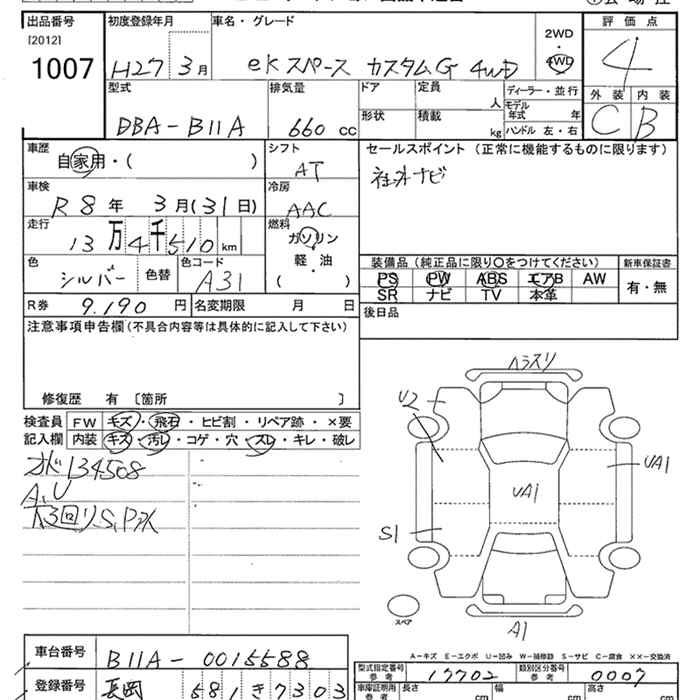 出品番号 初度登録年月 車名・グレード 評価点
[2012]
1007 H27 3月 eKスペース カスタムG 4WD 2WD 4WD 4
型式 排気量 ドア 定員 人 ディーラー・並行 外装 内装
DBA-B11A 660 cc 形状 積載 kg モデル年式 年 C B
ハンドル 左・右
車歴 自家用・( ) シフト AT セールスポイント (正常に機能するものに限ります)
社外ナビ
車検 R8年 3月(31日) 冷房 AAC
走行 13万4千510km 燃料 ガソリン
軽・油
( )
色 シルバー 色替 色コード A31
装備品(純正品に限り○をつけてください) 新車保証書
PS PW ABS エアB AW 有・無
SR ナビ TV 本革
R券 9.190円 名変期限 月 日 後日品
注意事項申告欄(不具合内容等は具体的に記入して下さい)
修復歴 有 〔箇所 〕
検査員 FW キズ・飛石・ヒビ割・リペア跡・×要
記入欄 内装 キズ・汚レ・コゲ・穴・スレ・キレ・破レ
134508
A,U
ヘラスリ
U2
UA1
UA1
S1
スペア
A1
A-キズ E-エクボ U-凹み W-補修跡 S-サビ C-腐食 ××-交換済
車台番号 B11A-0015588
型式指定番号 参考 17702 類別区分番号 参考 0007
登録番号 長岡 581 き 7303
車庫証明用 参考 長さ cm 幅 cm 高さ cm